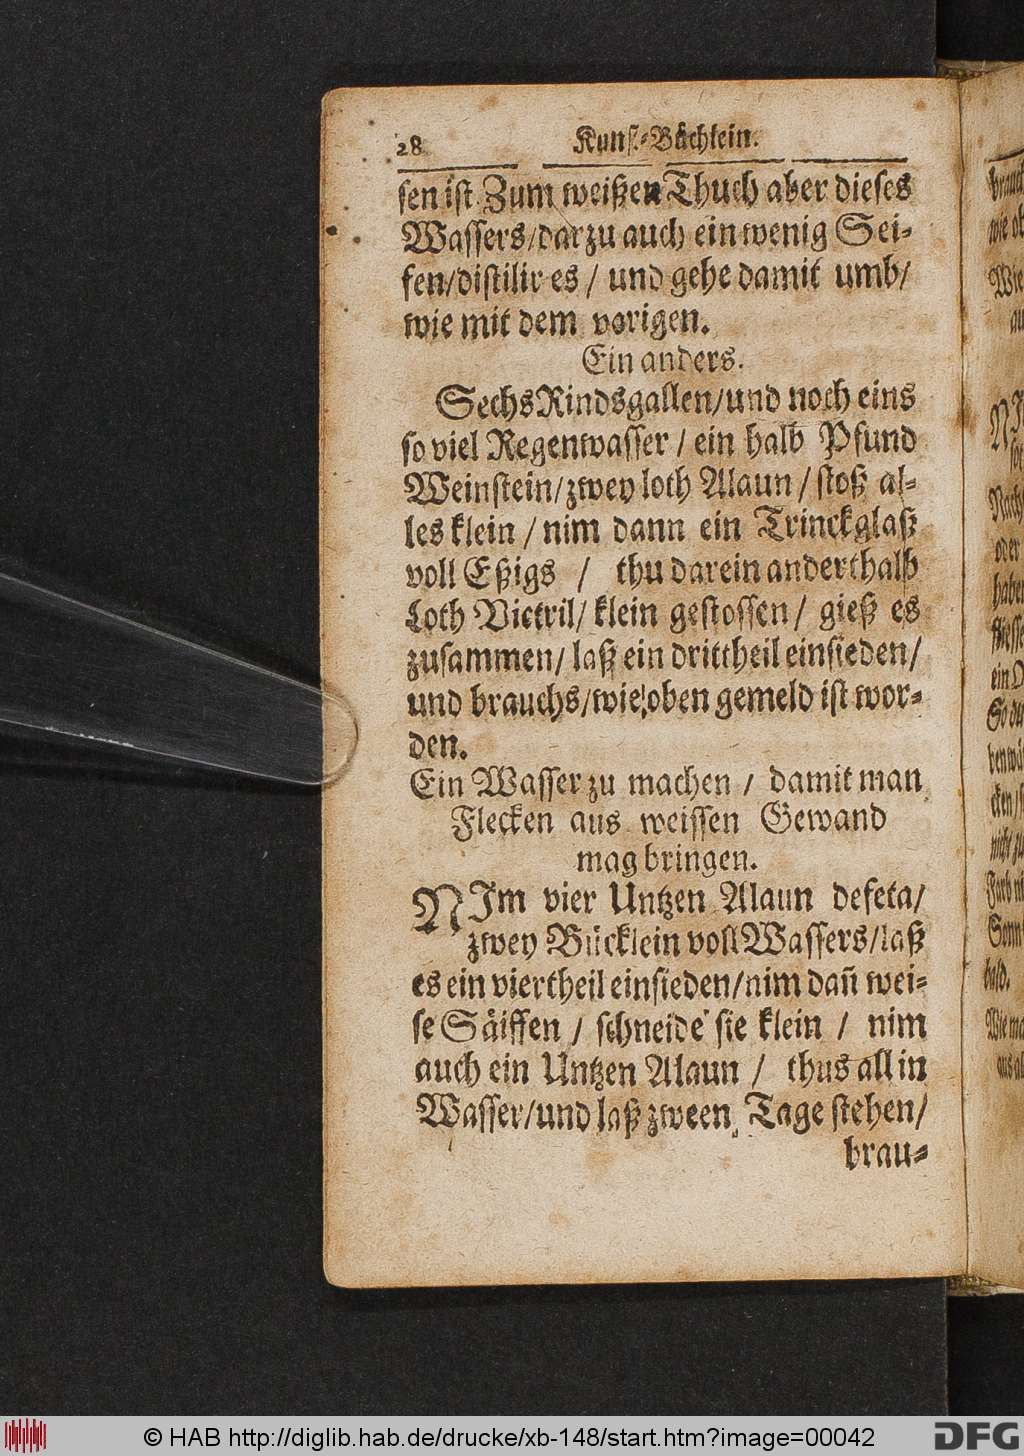 28 Kunst-Büchlein.
sen ist. Zum weißen Thuch aber dieses
Wassers/darzu auch ein wenig Sei-
fen/distilir es / und gehe damit umb/
wie mit dem vorigen.
Ein anders.
Sechs Rindsgallen/und noch eins
so viel Regenwasser / ein halb Pfund
Weinstein/zwey loth Alaun / stoß al-
les klein / nim dann ein Trinckglaß
voll Eßigs / thu darein anderthalb
Loth Victril/ klein gestossen/ gieß es
zusammen/ laß ein drittheil einsieden/
und brauchs/wie oben gemeld ist wor-
den.
Ein Wasser zu machen / damit man
Flecken aus weissen Gewand
mag bringen.
NIm vier Untzen Alaun defeta/
zwey Bücklein voll Wassers/laß
es ein viertheil einsieden/nim dañ wei-
se Säiffen / schneide sie klein / nim
auch ein Untzen Alaun / thus all in
Wasser/und laß zween Tage stehen/
brau-
© HAB http://diglib.hab.de/drucke/xb-148/start.htm?image=00042
DFG